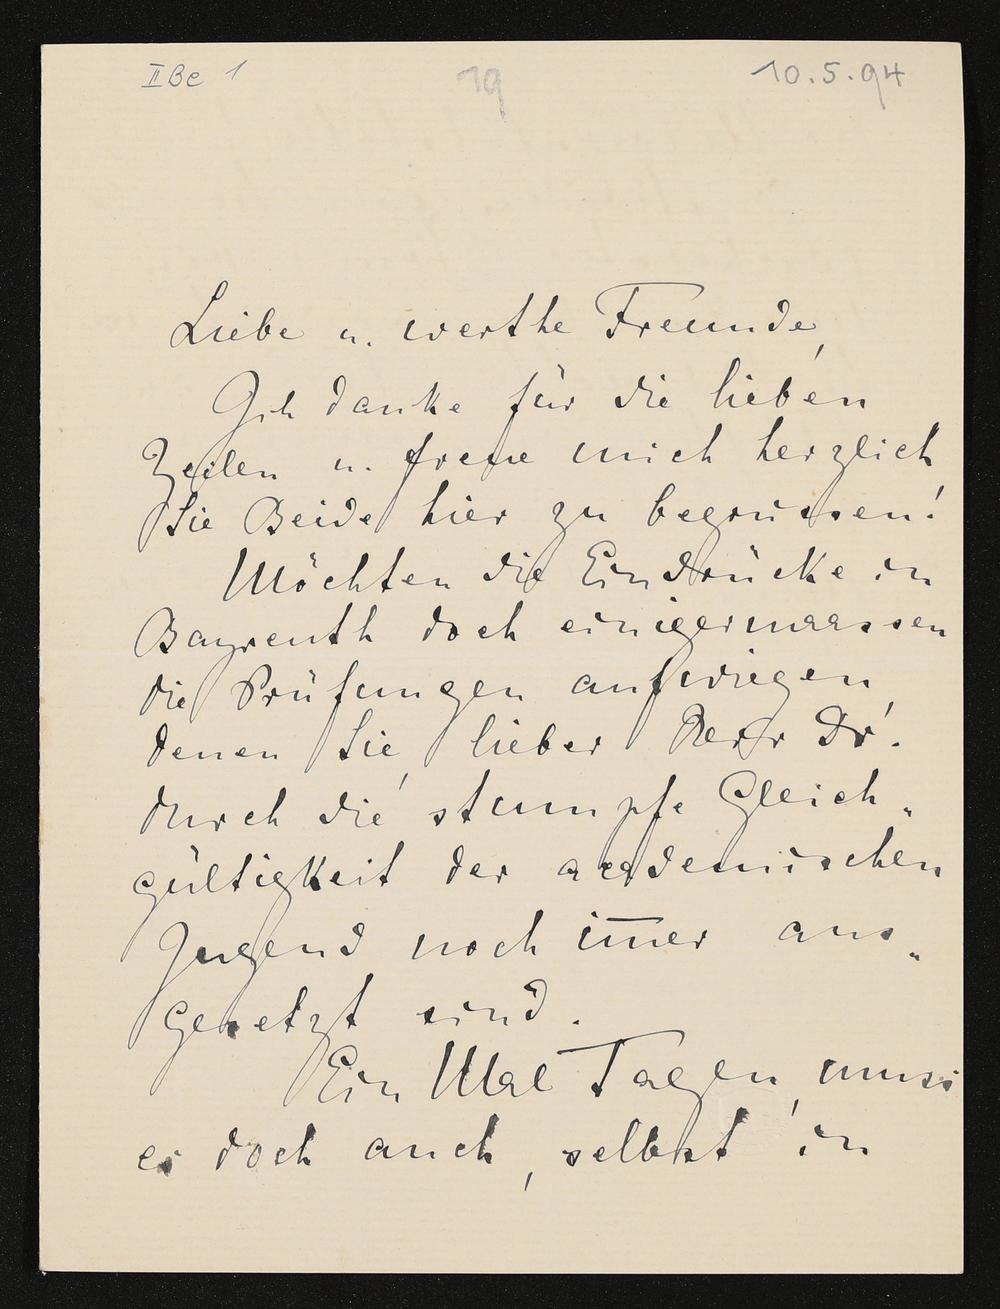 II Be 1 19 10.5.94
Liebe u. werthe Freunde,
Ich danke für die lieben
Zeilen u. freue mich herzlich
Sie Beide hier zu begrüssen!
Möchten die Eindrücke in
Bayreuth doch einigermaassen
die Prüfungen aufwiegen,
denen Sie, lieber Herr Dr.
durch die stumpfe Gleich„
gültigkeit der academischen
Jugend noch im̅er aus„
gesetzt sind.
Ein Mal Tagen, muss
es doch auch, selbst in